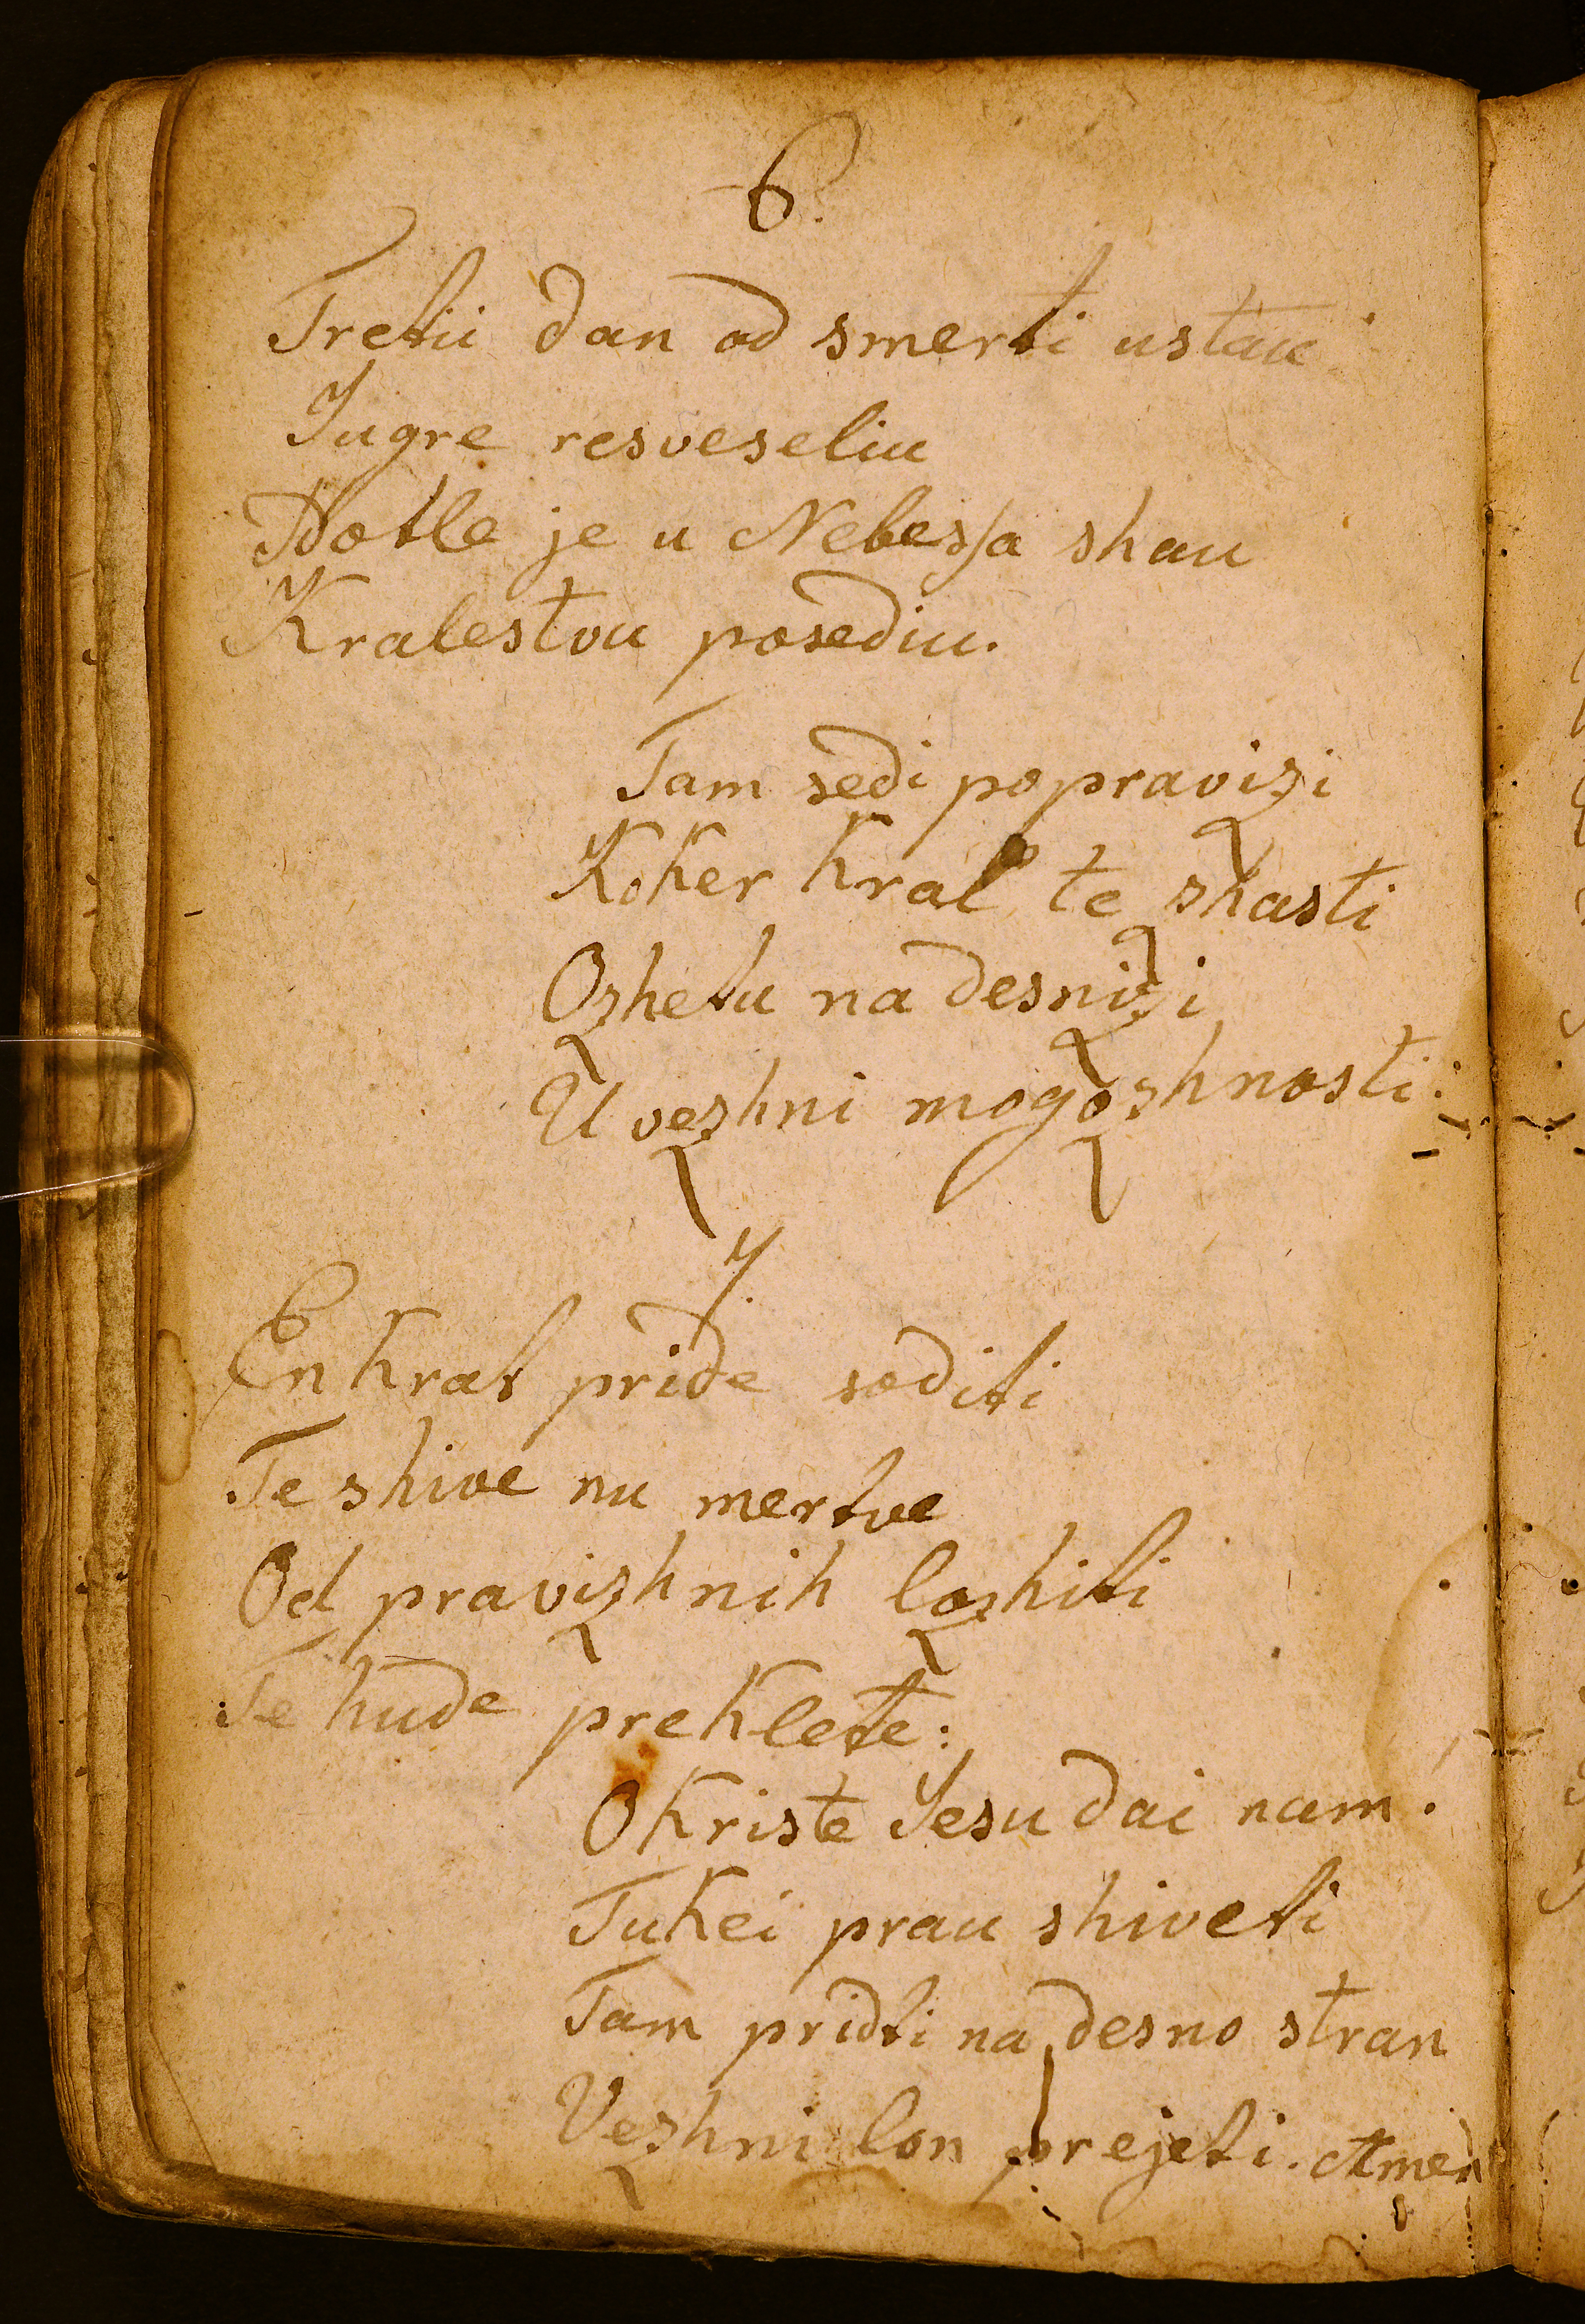 6.
Tretii dan od smerti ustau
Jugre resveseliu
Potle je u Nebessa shau
Kralestvu posediu.
Tam sedi popravizi
Koker kral te zhasti
Ozhetu na desnizi
U vezhni mogozhnosti:
7.
En krat pride soditi
Te shive nu mertve
Od pravizhnih lozhiti
Te hude preklete:
O Kriste Jesu dai nam!
Tukei prau shiveti
Tam pridti na desno stran
Vezhni lon prejeti. Amen